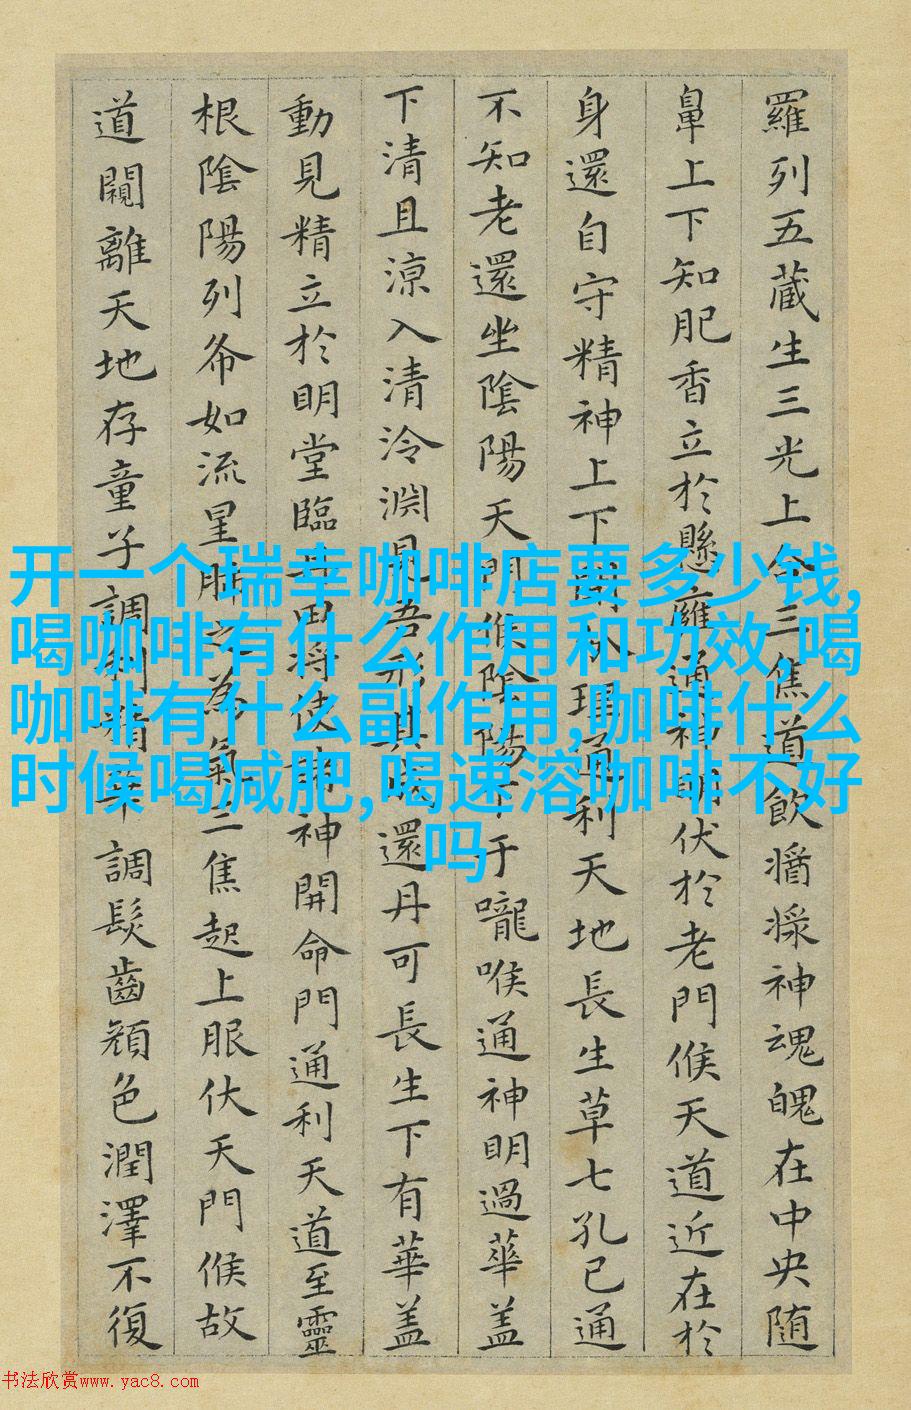 羅列五藏生三光上合三焦道飲神魂魄在中央随
鼻上下知肥香立於懸癰通神明伏於老門候天道近在於
身還自守精神上下開分理通利天地長生草七孔已通
不知老還坐陰陽天門候陰陽下于嚨喉通神明過華盖
下清且涼入清泠淵見吾形其成還丹可長生下有華盖
動見精立於明堂臨丹田将使諸神開命門通利天道至靈
根陰陽列布如流星肺之為氣三焦起上服伏天門候故
道闚離天地存童子調利精華調髮齒顔色潤澤不復
开一个瑞幸咖啡店要多少钱,
喝咖啡有什么作用和功效,喝
咖啡有什么副作用,咖啡什么
时候喝减肥,喝速溶咖啡不好
吗
书法欣赏www.yac8.com